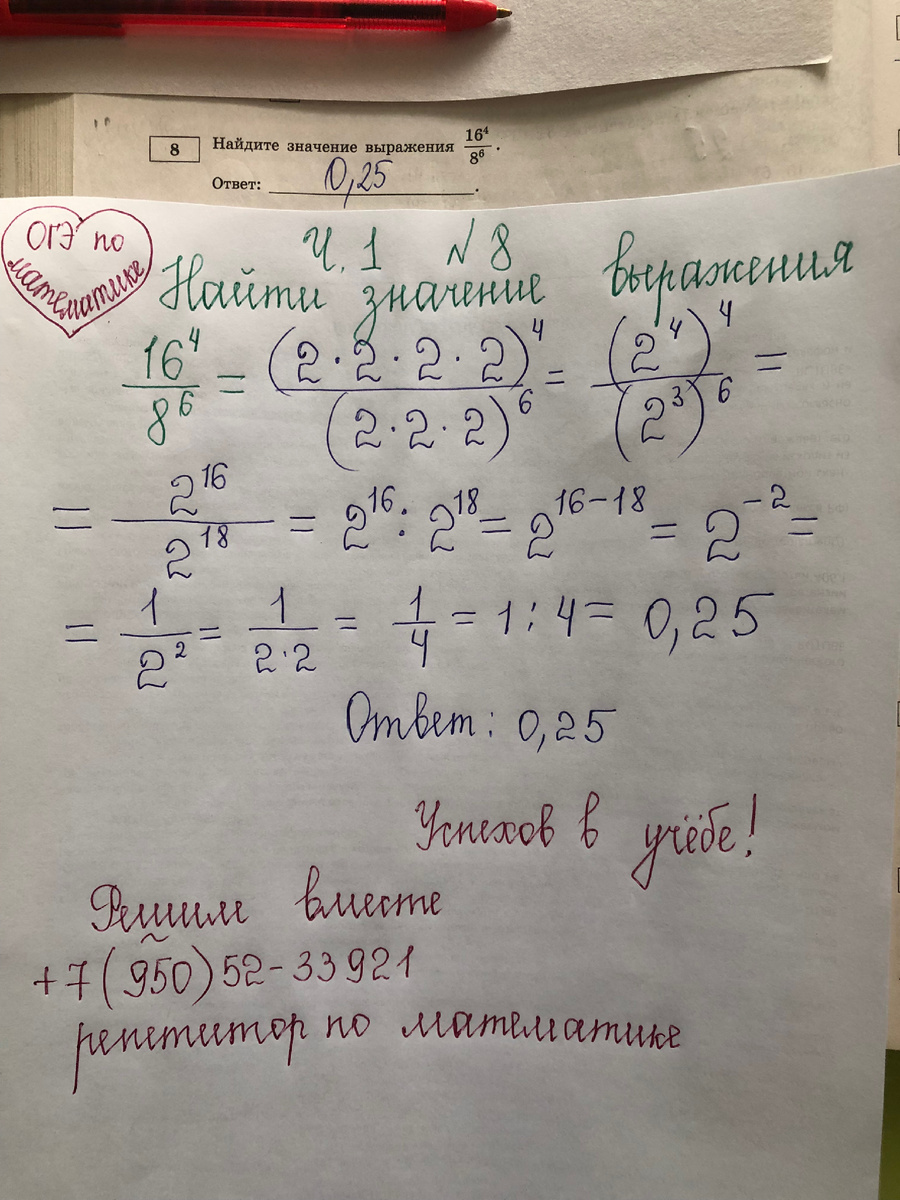 8 Найдите значение выражения 16⁴/8⁶.
Ответ: 0,25.
ОГЭ по
математике
Ч. 1 № 8
Найти значение выражения
16⁴/8⁶ = (2·2·2·2)⁴/(2·2·2)⁶ = (2⁴)⁴/(2³)⁶ =
= 2¹⁶/2¹⁸ = 2¹⁶ : 2¹⁸ = 2¹⁶⁻¹⁸ = 2⁻² =
= 1/2² = 1/2·2 = 1/4 = 1 : 4 = 0,25
Ответ: 0,25
Успехов в учёбе!
Решим вместе
+7(950)52-33921
репетитор по математике